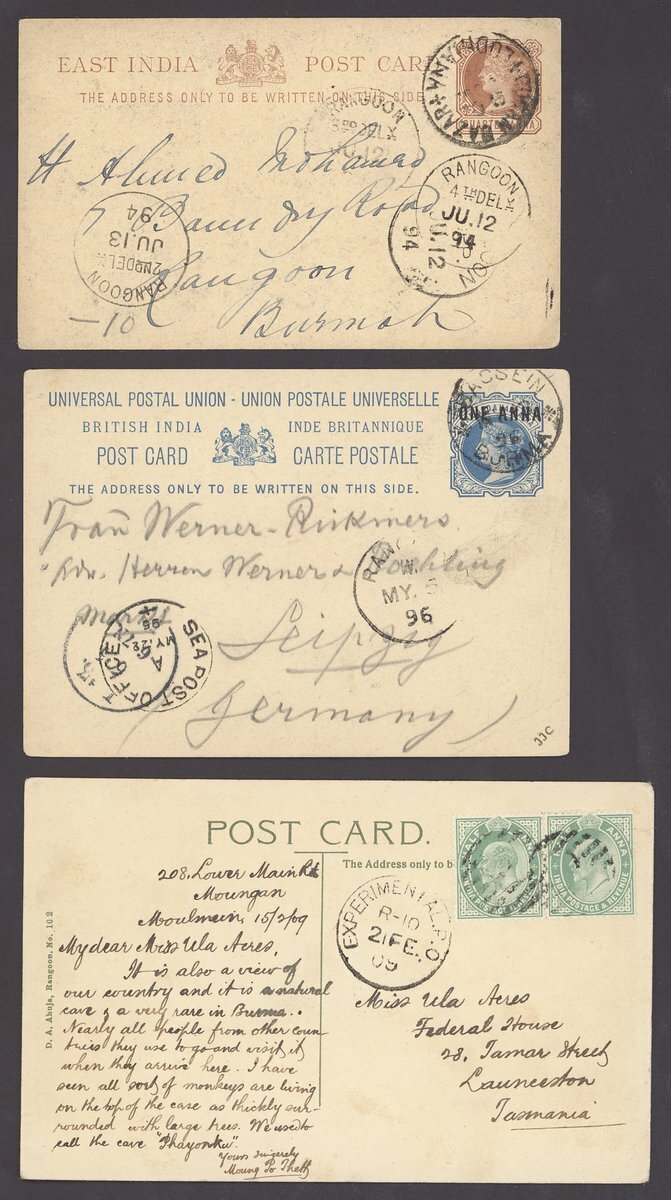 EAST INDIA POST CARD
THE ADDRESS ONLY TO BE WRITTEN ON THIS SIDE
QUARTER ANNA
RANGOON
JU.12
H Ahmed Mohamad
7 Boundry Road
Rangoon
Burmah
RANGOON
4TH DELY
JU.12
94
JU.12
94
RANGOON
2ND DELY
JU.13
94
—10
UNIVERSAL POSTAL UNION - UNION POSTALE UNIVERSELLE
BRITISH INDIA INDE BRITANNIQUE
POST CARD CARTE POSTALE
THE ADDRESS ONLY TO BE WRITTEN ON THIS SIDE.
ONE ANNA
BASSEIN
BURMA
Frau Werner-Rickmers
Adr. Herren Werner &
Leipzig
Germany
MY. 5
96
SEA POST OFFICE
A
JJC
POST CARD.
The Address only to b
HALF ANNA
INDIA POSTAGE & REVENUE
EXPERIMENTAL P.O.
R-10
21 FE.
09
208, Lower Main Rd
Moungan
Moulmein, 15/2/09
My dear Miss Ula Acres,
It is also a view of
our country and it is a natural
cave & a very rare in Burma..
Nearly all people from other coun-
tries they use to go and visit it
when they arrive here. I have
seen all sort of monkeys are living
on the top of the cave as thickly sur-
rounded with large trees. We used to
call the cave "Phayonku".
Yours sincerely
Moung Po Theth
Miss Ula Acres
Federal House
28, Tamar Street
Launceston
Tasmania
D. A. Ahuja, Rangoon, No. 102